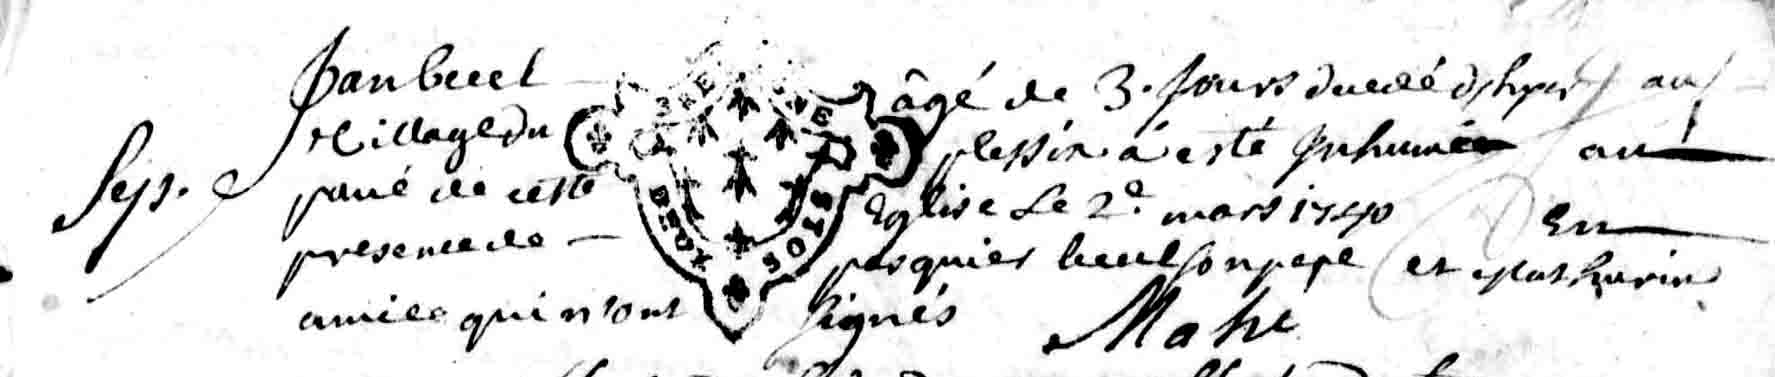 Jan beccel âgé de 3. Jours decedé d'hyer au
Village du plessix a esté Inhumée au
Sep. pavé de cette Eglise Le 2e. mars 1740 En
presence de pasquier beccel son pere et Mathurin
amice qui n'ont signés Mahé
DEUX SOLS